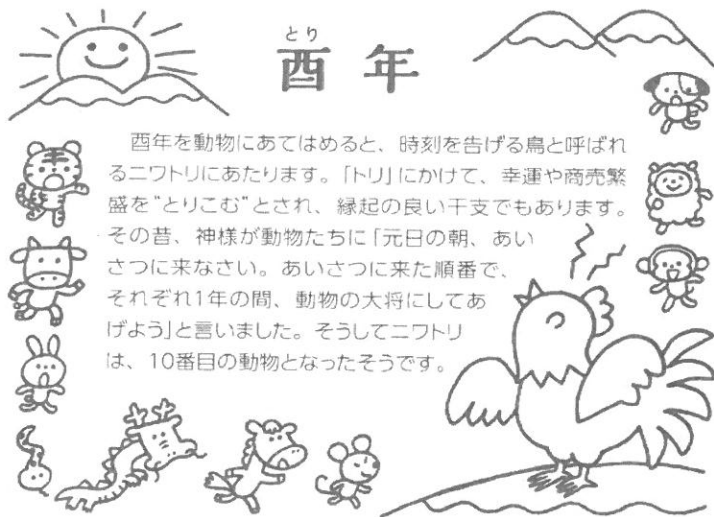 とり
酉年
酉年を動物にあてはめると、時刻を告げる鳥と呼ばれ
るニワトリにあたります。「トリ」にかけて、幸運や商売繁
盛を"とりこむ"とされ、縁起の良い干支でもあります。
その昔、神様が動物たちに「元日の朝、あい
さつに来なさい。あいさつに来た順番で、
それぞれ1年の間、動物の大将にしてあ
げよう」と言いました。そうしてニワトリ
は、10番目の動物となったそうです。